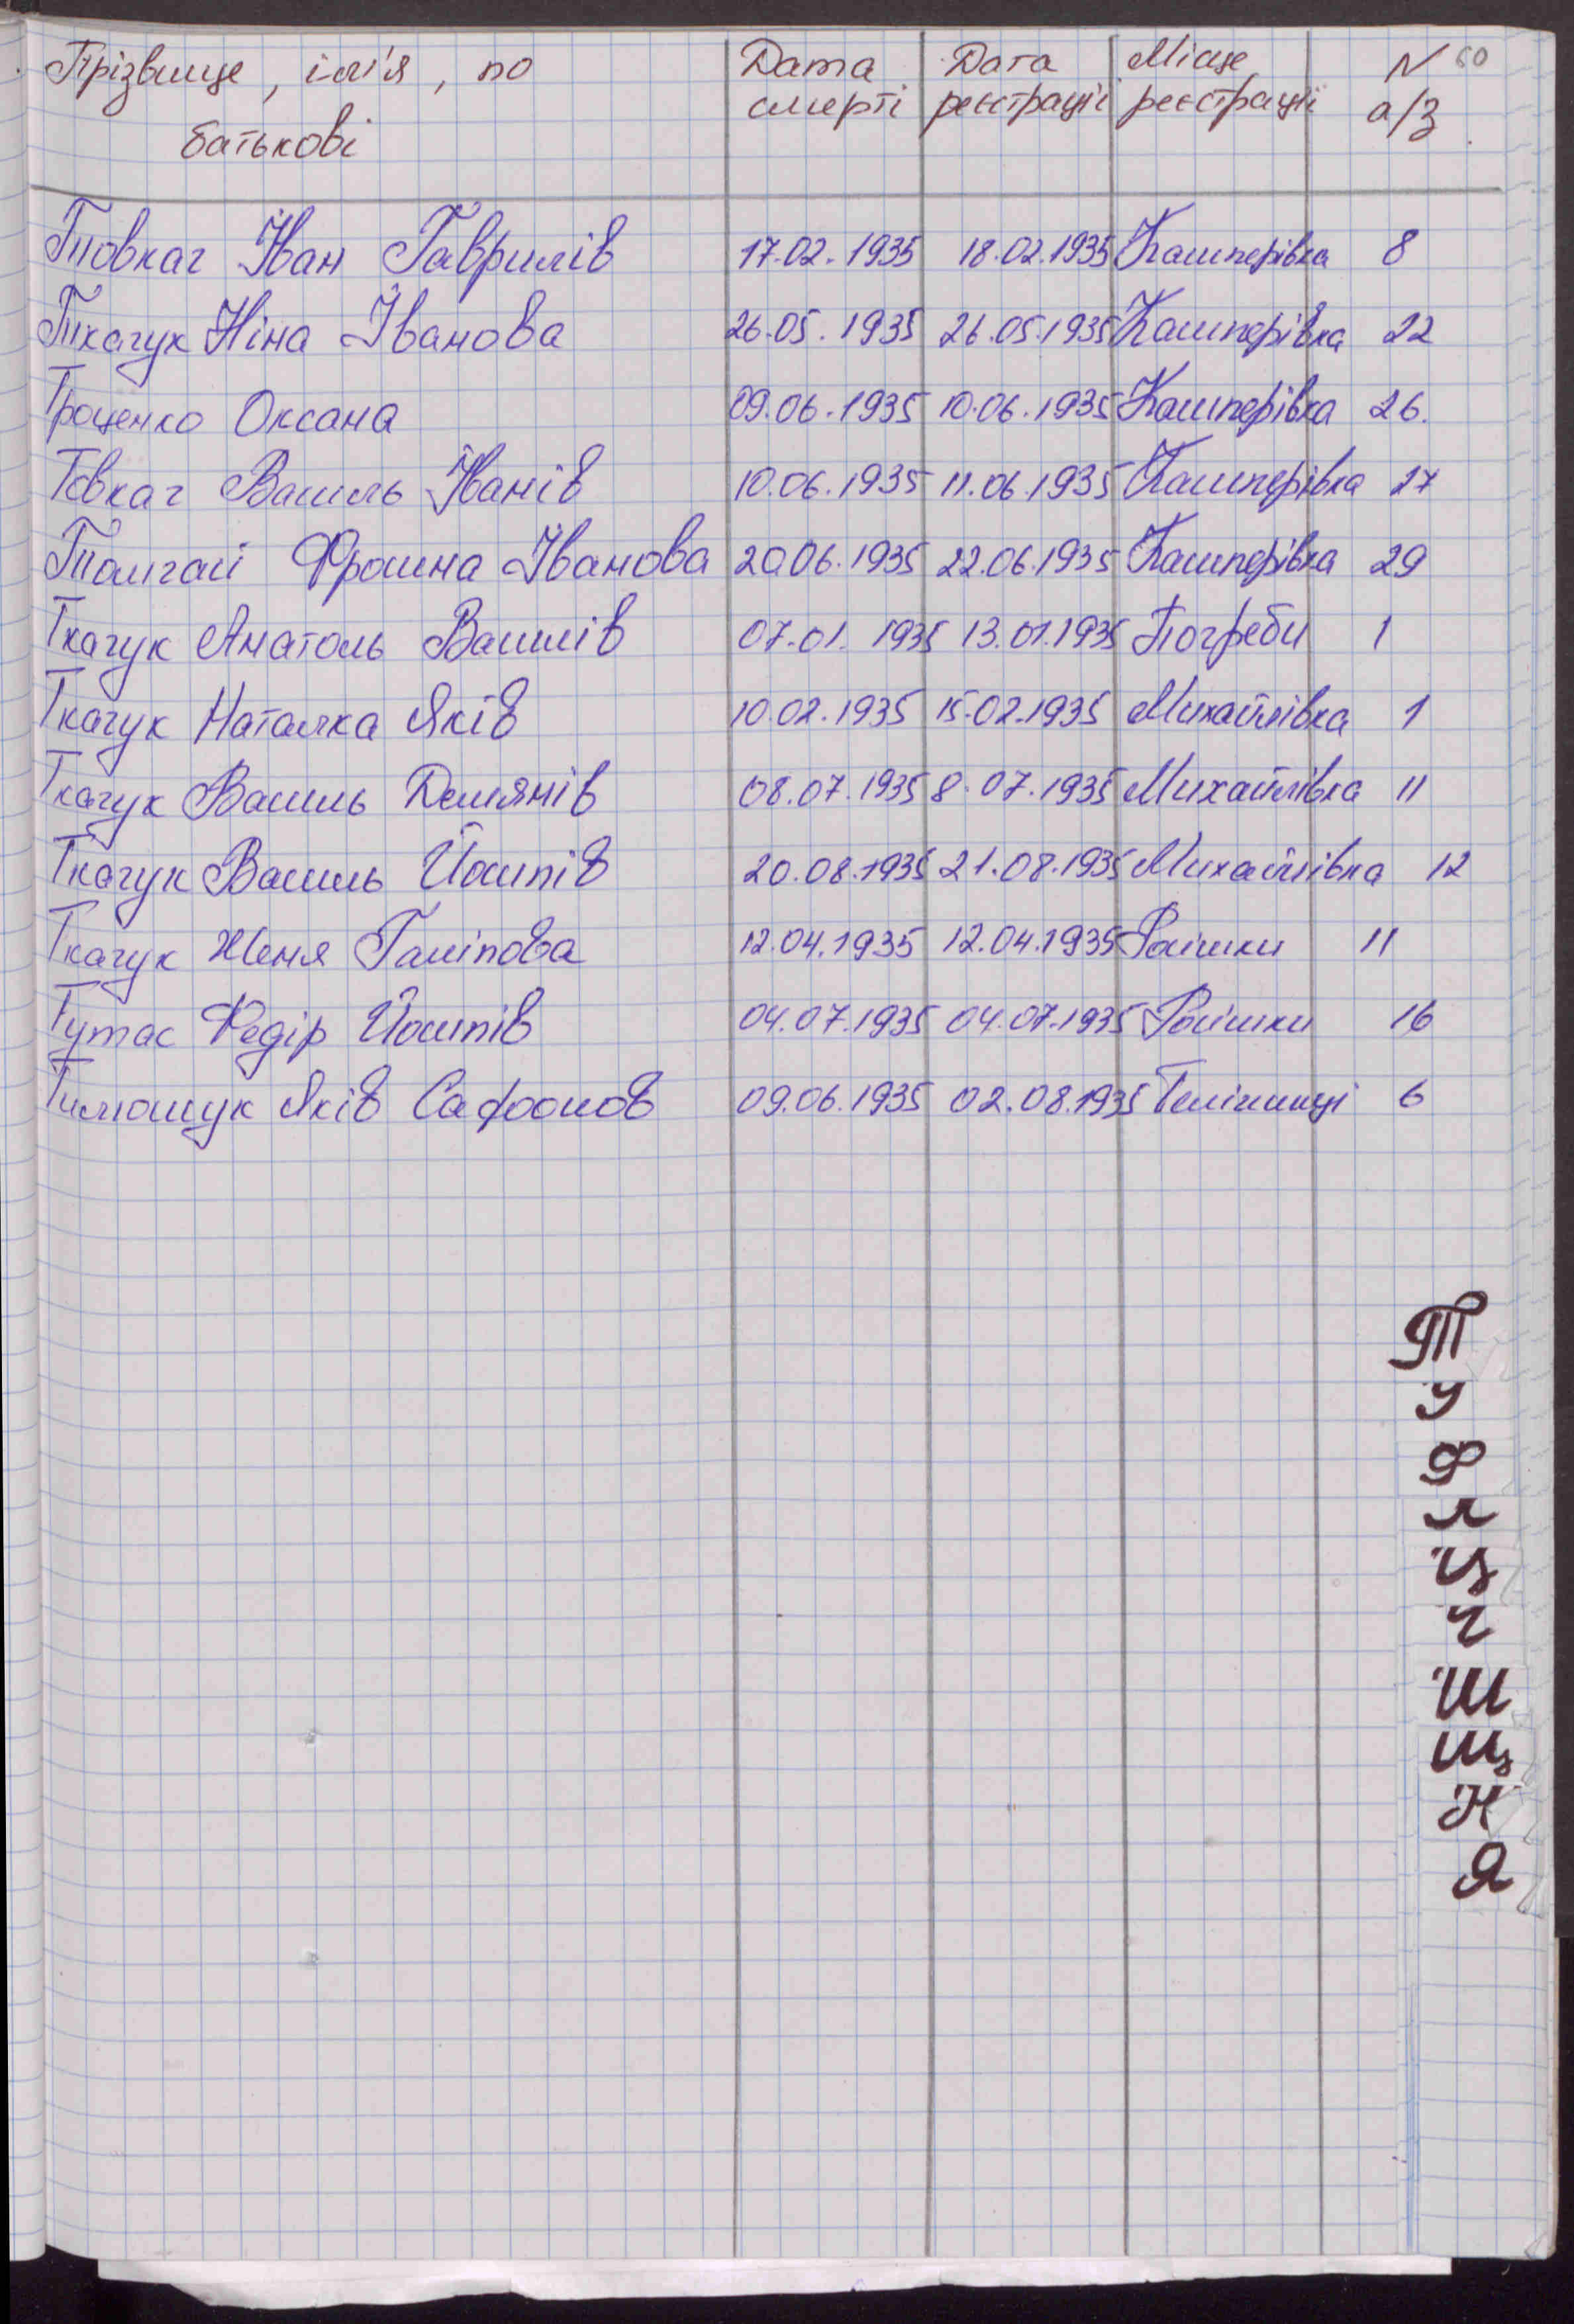 Прізвище, ім'я, по батькові Дата смерті Дата реєстрації Місце реєстрації N а/з 60
Товкач Іван Гаврилів 17.02.1935 18.02.1935 Кашперівка 8
Ткачук Ніна Іванова 26.05.1935 26.05.1935 Кашперівка 22
Троценко Оксана 09.06.1935 10.06.1935 Кашперівка 26.
Товкач Василь Іванів 10.06.1935 11.06.1935 Кашперівка 27
Толмгай Фросина Іванова 20.06.1935 22.06.1935 Кашперівка 29
Ткачук Анатоль Василів 07.01.1935 13.01.1935 Погреби 1
Ткачук Наталка Яків 10.02.1935 15.02.1935 Михайлівка 1
Ткачук Василь Демянів 08.07.1935 8.07.1935 Михайлівка 11
Ткачук Василь Йосипів 20.08.1935 21.08.1935 Михайлівка 12
Ткачук Женя 12.04.1935 12.04.1935 Росішки 11
Тутас Федір Йосипів 04.07.1935 04.07.1935 Росішки 16
Тимошук Яків 09.06.1935 02.08.1935 Теліжинці 6
Т
У
Ф
Х
Ц
Ч
Ш
Щ
Ю
Я